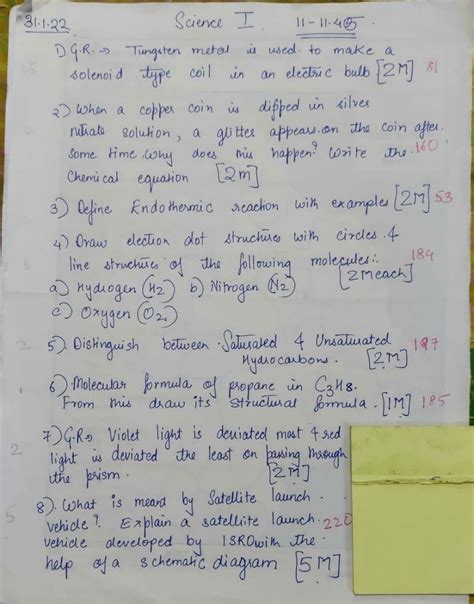 31.1.22 Science I 11-11.45
1) G.R.→ Tungsten metal is used to make a
solenoid type coil in an electric bulb [2M] 81
2) When a copper coin is dipped in silver
nitrate solution, a glitter appears on the coin after
some time. Why does this happen? Write the 160
Chemical equation [2m]
3) Define Endothermic reaction with examples [2M] 53
4) Draw electron dot structures with circles &
line structures of the following molecules:- 184
[2M each]
a) Hydrogen (H2) b) Nitrogen (N2)
c) Oxygen (O2)
2 5). Distinguish between Saturated & Unsaturated 197
Hydrocarbons. [2M]
6) Molecular formula of propane in C3H8.
From this draw its structural formula. [1M] 185
7) G.R→ Violet light is deviated most & red
2 light is deviated the least on passing through
the prism. [2M]
8). What is meant by Satellite launch
5 vehicle? Explain a satellite launch. 220
vehicle developed by ISRO with the
help of a schematic diagram [5M]